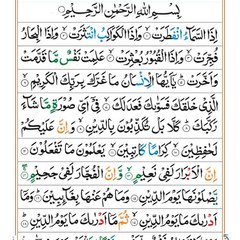 بِسْمِ اللّٰهِ الرَّحْمٰنِ الرَّحِيْمِ
اِذَا السَّمَآءُ انْفَطَرَتْ ۙ وَاِذَا الْكَوَاكِبُ انْتَثَرَتْ ۙ وَاِذَا الْبِحَارُ
فُجِّرَتْ ۙ وَاِذَا الْقُبُوْرُ بُعْثِرَتْ ۙ عَلِمَتْ نَفْسٌ مَّا قَدَّمَتْ
وَاَخَّرَتْ ؕ يٰۤاَيُّهَا الْاِنْسَانُ مَا غَرَّكَ بِرَبِّكَ الْكَرِيْمِ ۙ
الَّذِيْ خَلَقَكَ فَسَوّٰىكَ فَعَدَلَكَ ۙ فِيْۤ اَيِّ صُوْرَةٍ مَّا شَآءَ
رَكَّبَكَ ؕ كَلَّا بَلْ تُكَذِّبُوْنَ بِالدِّيْنِ ۙ وَاِنَّ عَلَيْكُمْ
لَحٰفِظِيْنَ ۙ كِرَامًا كَاتِبِيْنَ ۙ يَعْلَمُوْنَ مَا تَفْعَلُوْنَ
اِنَّ الْاَبْرَارَ لَفِيْ نَعِيْمٍ ۚ وَاِنَّ الْفُجَّارَ لَفِيْ جَحِيْمٍ ۖ
يَّصْلَوْنَهَا يَوْمَ الدِّيْنِ وَمَا هُمْ عَنْهَا بِغَآئِبِيْنَ ؕ وَمَاۤ
اَدْرٰىكَ مَا يَوْمُ الدِّيْنِ ۙ ثُمَّ مَاۤ اَدْرٰىكَ مَا يَوْمُ الدِّيْنِ